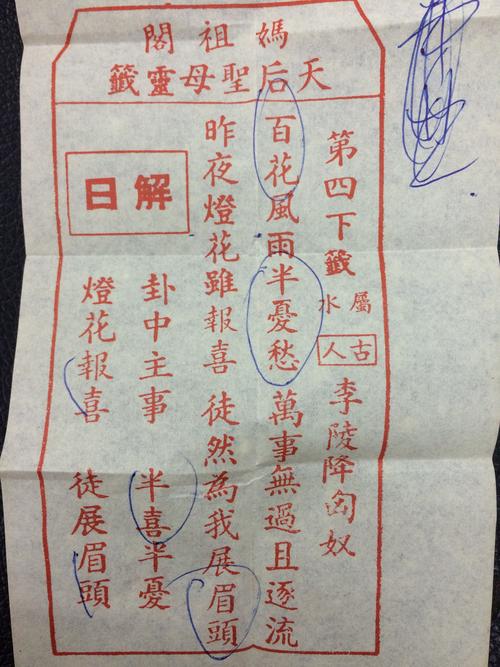 媽祖閣
天后聖母靈籤
第四下籤
屬水
古人
李陵降匈奴
百花風雨半憂愁 萬事無過且逐流
昨夜燈花雖報喜 徒然為我展眉頭
解曰
卦中主事 半喜半憂
燈花報喜 徒展眉頭